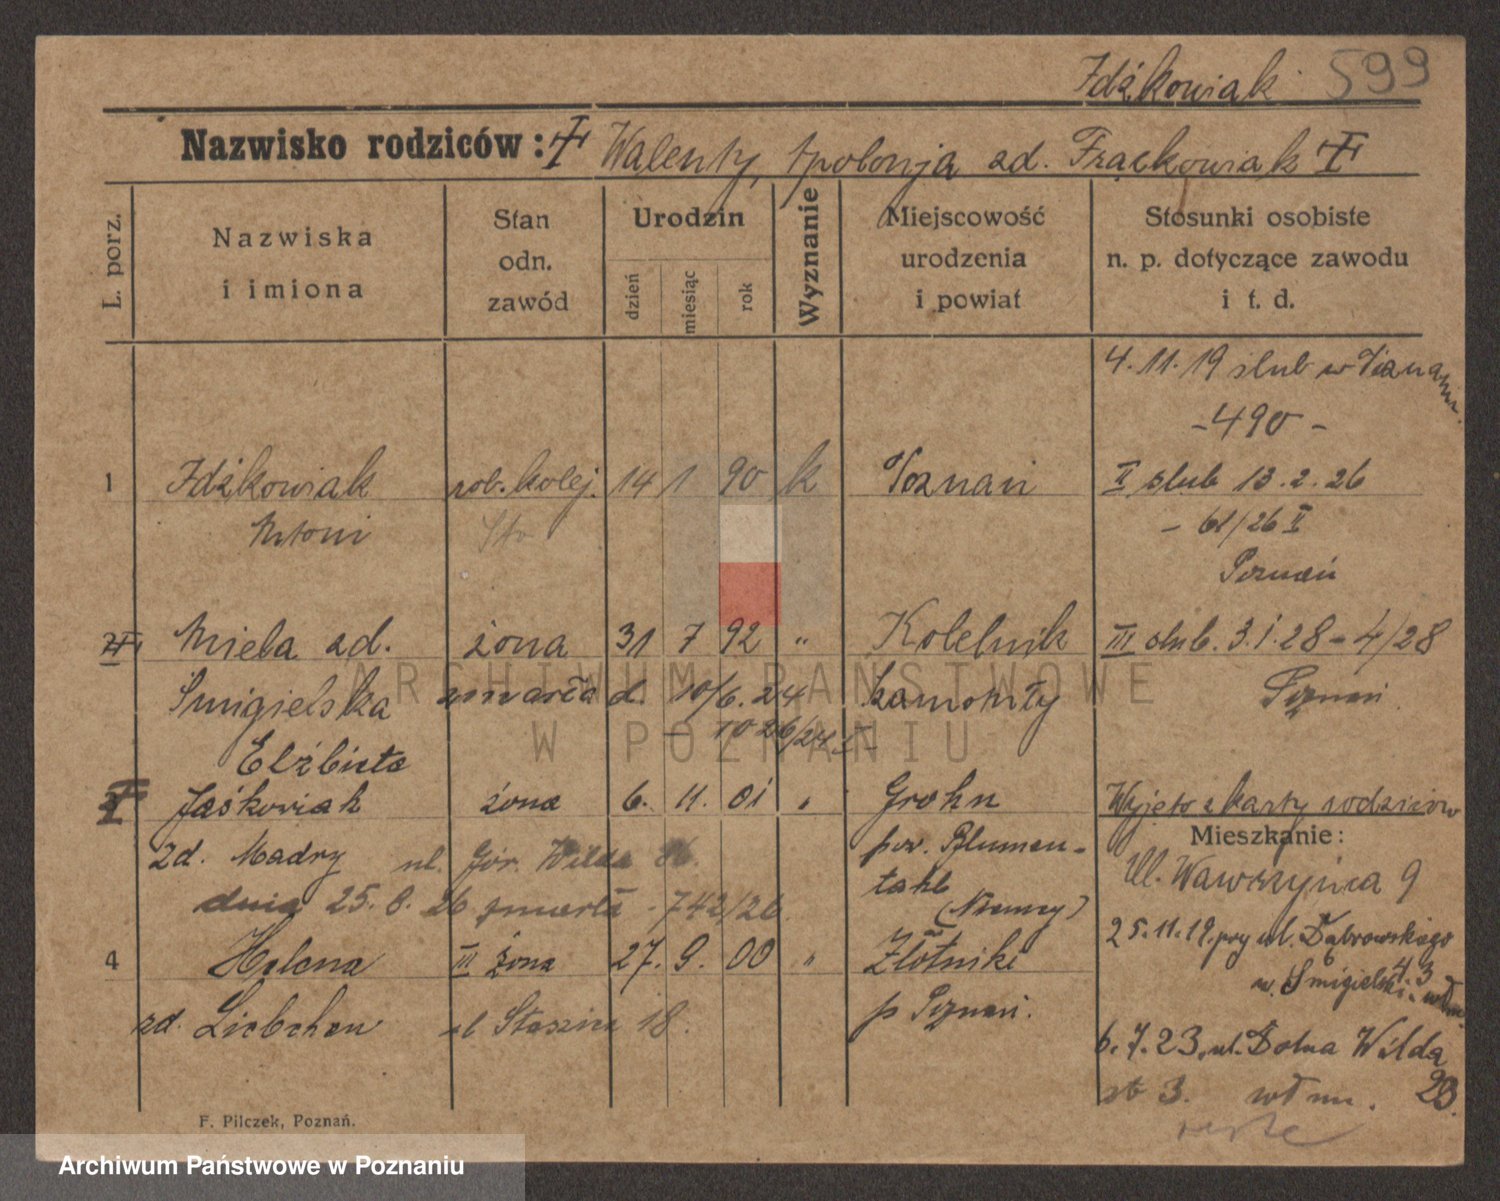 Idźkowiak 599
Nazwisko rodziców: Walenty, Apolonja zd. Frąckowiak
L. porz.
Nazwiska i imiona
Stan odn. zawód
Urodzin
dzień
miesiąc
rok
Wyznanie
Miejscowość urodzenia i powiat
Stosunki osobiste n. p. dotyczące zawodu i t. d.
4.11.19 slub w Poznaniu
-490-
1 Idźkowiak rob. kolej. 14 1 90 k Poznań II slub 13.2.26
Antoni
- 61/26 II
Poznań
2 Aniela zd. żona 31 7 92 " Kobelnik III slub. 3.1.28 - 4/28
Smigielska zmarła d. 10/6.24 Szamotuły Poznań
- 1026/24
Elżbieta
Jaśkowiak żona 6. 11. 01 " Grohn Wyjęto z karty rodziców
Mieszkanie:
zd. Mądry ul. Gór. Wilda pow. Blumen-
tahl
Ul. Wawrzyńca 9
dnia 25.8.26 zmarła - 742/26. (Niemcy)
25.11.19. przy ul. Dąbrowskiego
43
4 Helena III żona 27. 9. 00 " Złotniki
w. Smigielski
zd. Liebchen ul Staszica 18. p Poznań.
6.7.23. ul. Dolna Wilda
23.
3.
F. Pilczek, Poznań.
ARCHIWUM PAŃSTWOWE
W POZNANIU
Archiwum Państwowe w Poznaniu